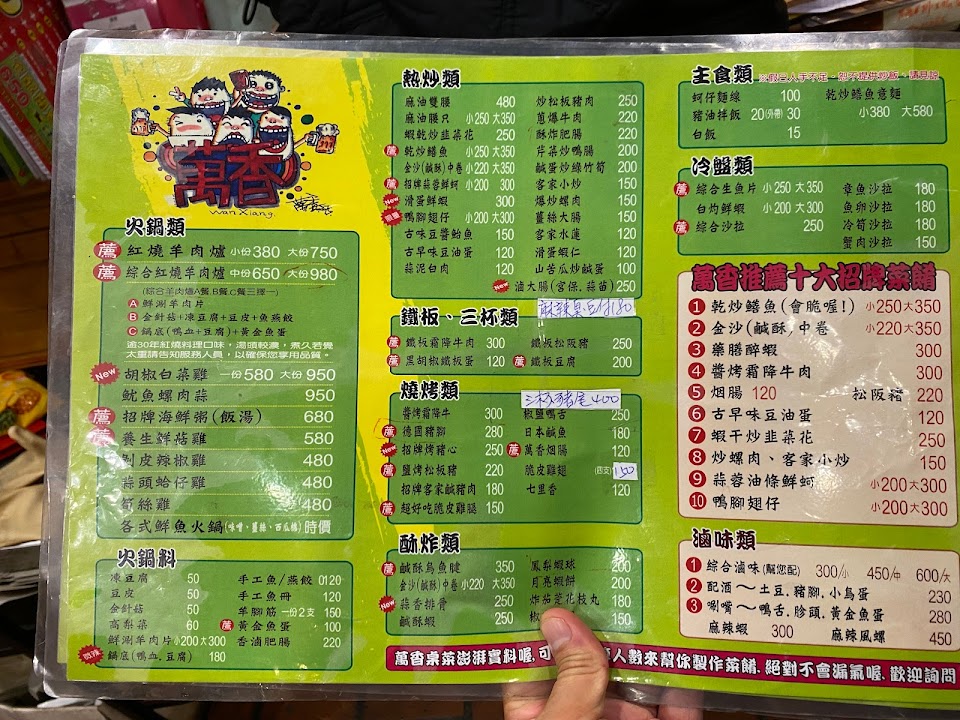 萬香
wan Xiang.
火鍋類
薦 紅燒羊肉爐 小份380 大份750
薦 綜合紅燒羊肉爐 中份650 大份980
(綜合羊肉爐A餐.B餐.C餐三擇一)
A 鮮涮羊肉片
B 金針菇+凍豆腐+豆皮+魚燕餃
C 鍋底(鴨血+豆腐)+黃金魚蛋
逾30年紅燒料理口味,湯頭較濃,煮久若覺
太重請告知服務人員,以確保您享用品質。
New 胡椒白菜雞 一份580 大份950
魷魚螺肉蒜 950
薦 招牌海鮮粥(飯湯) 680
薦 養生鮮菇雞 580
剝皮辣椒雞 480
蒜頭蛤仔雞 480
筍絲雞 480
各式鮮魚火鍋(味噌、薑絲、西瓜綿) 時價
火鍋料
凍豆腐 50
豆皮 50
金針菇 50
高梨菜 60
鮮涮羊肉片 小200 大300
鍋底(鴨血.豆腐) 180
手工魚/燕餃 0120
手工魚冊 120
羊腳筋 一份2支 150
薦 黃金魚蛋 100
香滷肥腸 220
熱炒類
麻油雙腰 480
麻油腰只 小250 大350
蝦乾炒韭菜花 250
薦 乾炒鱔魚 小250 大350
金沙(鹹酥)中卷 小220 大350
薦 招牌蒜蓉鮮蚵 小200 300
New 滑蛋鮮蝦 300
鴨腳翅仔 小200 大300
古味豆醬鮐魚 150
古早味豆油蛋 120
蒜泥白肉 120
炒松板豬肉 250
蔥爆牛肉 220
酥炸肥腸 220
芹菜炒鴨腸 200
鹹蛋炒綠竹筍 200
客家小炒 150
爆炒螺肉 150
薑絲大腸 150
客家水蓮 120
滑蛋蝦仁 120
山苦瓜炒鹹蛋 100
New 滷大腸(宮保.蒜苗) 250
麻辣臭豆付180
鐵板、三杯類
薦 鐵板霜降牛肉 300
薦 黑胡椒鐵板蛋 120
鐵板松阪豬 250
薦 鐵板豆腐 200
燒烤類
三杯豬尾400
醬烤霜降牛 300
薦 德國豬腳 280
New 招牌烤豬心 250
薦 鹽烤松板豬 220
招牌客家鹹豬肉 180
薦 超好吃脆皮雞腿 150
椒鹽鴨舌 250
日本鹹魚 180
薦 萬香烟腸 120
脆皮雞翅 (四支) 150
七里香 120
酥炸類
薦 鹹酥烏魚腱 350
金沙(鹹酥)中卷 小220 大350
New 蒜香排骨 250
鹹酥蝦 250
鳳梨蝦球 200
月亮蝦餅 200
炸茄荖花枝丸 180
椒 150
主食類 ※假日人手不足,恕不提供炒飯,請見諒
蚵仔麵線 100
豬油拌飯 20(外帶) 30
白飯 15
乾炒鱔魚意麵
小380 大580
冷盤類
薦 綜合生魚片 小250 大350
白灼鮮蝦 小200 大300
薦 綜合沙拉 250
章魚沙拉 180
魚卵沙拉 180
冷筍沙拉 180
蟹肉沙拉 150
萬香推薦十六招牌菜餚
1 乾炒鱔魚(會脆喔!) 小250大350
2 金沙(鹹酥)中卷 小220大350
3 藥膳醉蝦 300
4 醬烤霜降牛肉 300
5 烟腸 120 松阪豬 220
6 古早味豆油蛋 120
7 蝦干炒韭菜花 250
8 炒螺肉、客家小炒 150
9 蒜蓉油條鮮蚵 小200大300
10 鴨腳翅仔 小200大300
滷味類
1 綜合滷味(幫您配) 300/小 450/中 600/大
2 配酒~土豆.豬腳.小鳥蛋 230
3 唰嘴~鴨舌.胗頭.黃金魚蛋 280
麻辣蝦 300 麻辣風螺 450
萬香桌菜澎湃實料喔,可 人數來幫你製作菜餚,絕對不會漏氣喔,歡迎詢問